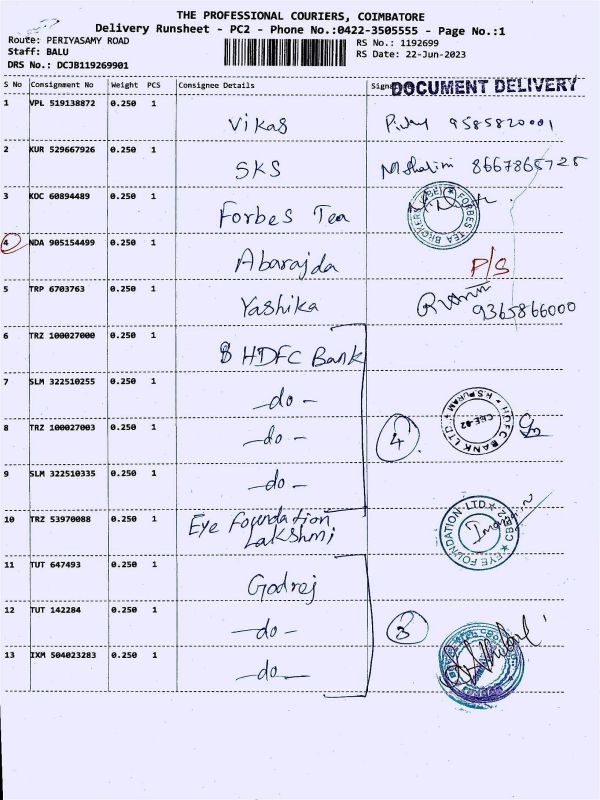 THE PROFESSIONAL COURIERS, COIMBATORE
Delivery Runsheet - PC2 - Phone No.:0422-3505555 - Page No.:1
Route: PERIYASAMY ROAD
RS No.: 1192699
Staff: BALU
RS Date: 22-Jun-2023
DRS No.: DCJB119269901
DOCUMENT DELIVERY
S No Consignment No Weight PCS Consignee Details
1 VPL 519138872 0.250 1
Vikas 9585820001
2 KUR 529667926 0.250 1
SKS MShalini 8667865725
3 KOC 60894489 0.250 1
Forbes Tea
FORBES TEA BROKERS
4 NDA 905154499 0.250 1
Abarajda P/S
5 TRP 6703763 0.250 1
Yashika 9365866000
6 TRZ 100027000 0.250 1
HDFC Bank
7 SLM 322510255 0.250 1
-do-
8 TRZ 100027003 0.250 1
-do- 4
HDFC BANK LTD
9 SLM 322510335 0.250 1
-do-
10 TRZ 53970088 0.250 1
Eye Foundation
Lakshmi
EYE FOUNDATION LTD CBE2
11 TUT 647493 0.250 1
Godrej
12 TUT 142284 0.250 1
-do- 3
13 IXM 504023283 0.250 1
-do-